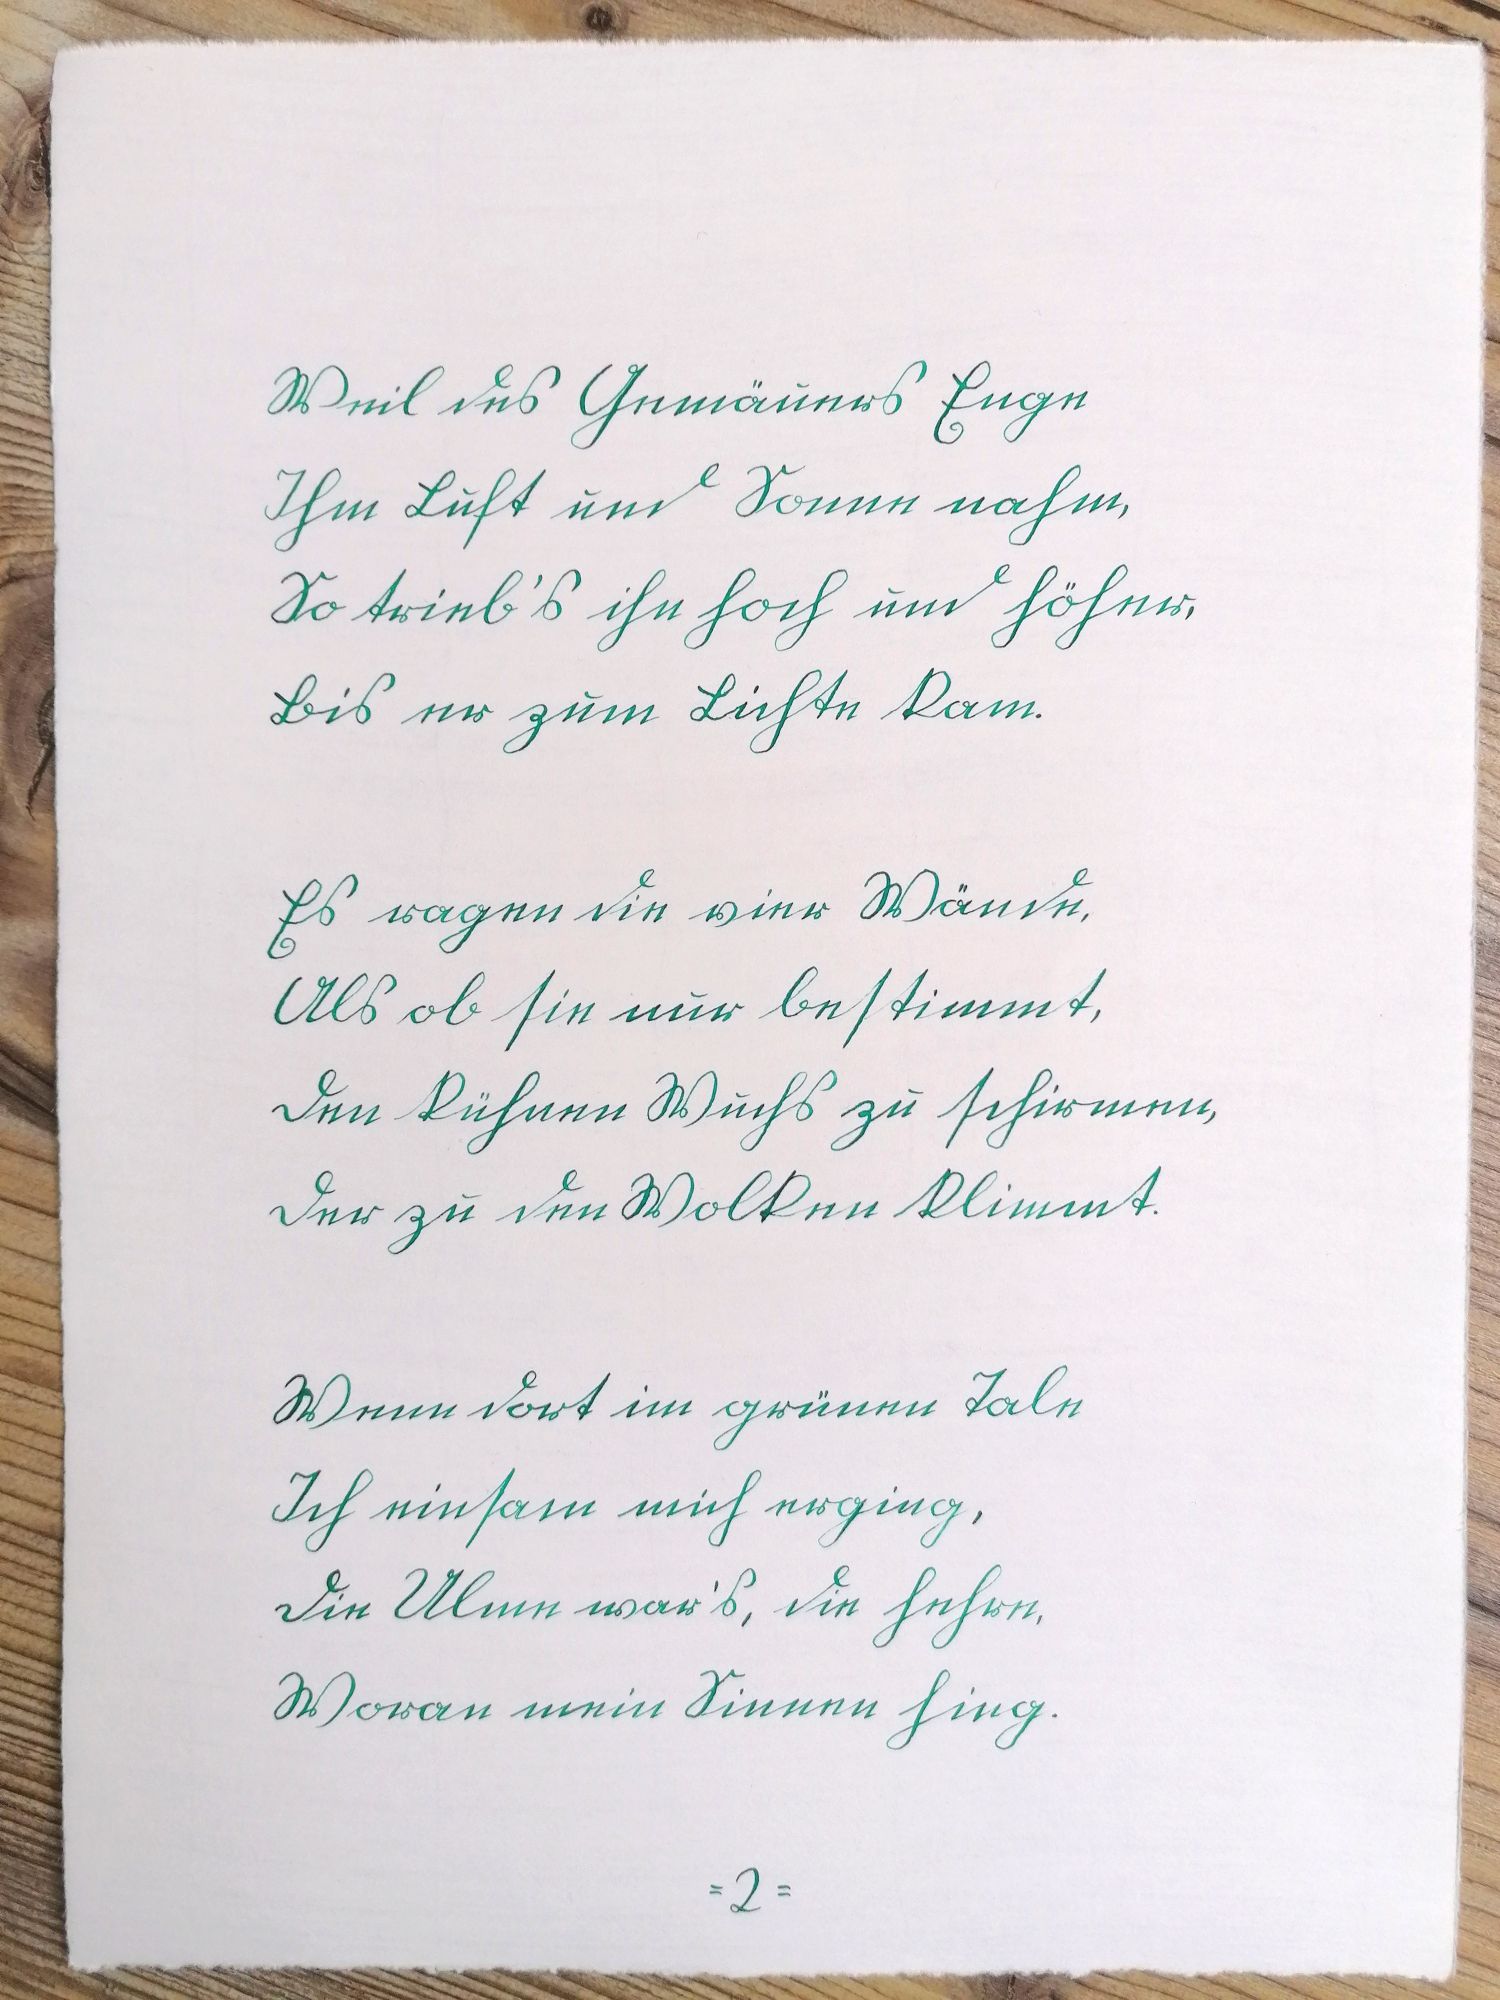 Weil des Gemäuers Enge
Ihm Luft und Sonne nahm,
So trieb's ihn hoch und höher,
Bis er zum Lichte kam.
Es ragen die vier Wände,
Als ob sie nur bestimmt,
Den kühnen Wuchs zu schirmen,
Der zu den Wolken klimmt.
Wenn dort im grünen Tale
Ich einsam mich erging,
Die Ulme war's, die hehre,
Woran mein Sinnen hing.
=2=